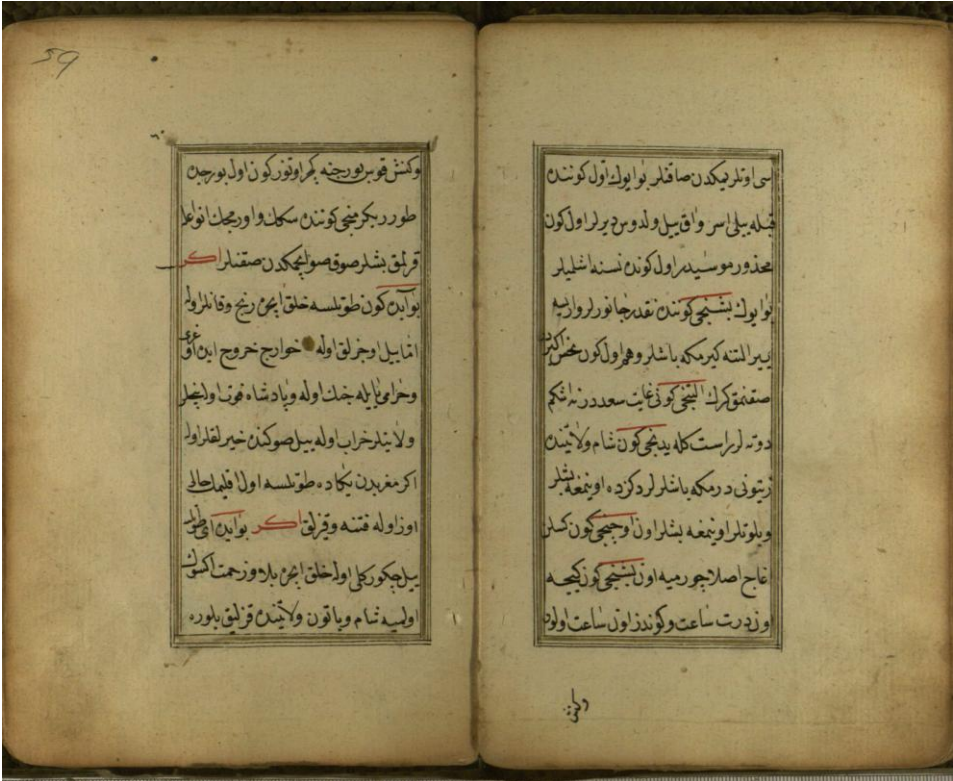 اسی اوتلر یمکدن صاقنلر بو ایوك اول کوننده
قبله یلی اسر واق ییل ولدوس دیرلر اول کون
محذور موسیدر اول کونده نسنه اشلیلر
بو ایوك بشنجی کوننده نقدر جانورلر وارایسه
ییر التنه کیرمکه باشلر وهم اول کون نحس اکبردن
صقنمق کرك التنجی کونی غایت سعددر نه اشکم
دوته لر راست کله یدنجی کون شام ولایتنده
زیتونی درمکه باشلرلر دکزده اوینمغه بشلر
وبلوتلر اوینمغه بشلر اون اوچنجی کون کسلن
اغاج اصلا چورمیه اون بشنجی کون کیجه
اون درت ساعت وکوندز اون ساعت اولور
وکنش
59
وکنش قوس بورجنه کیر اوتوز کون اول بورجده
طورر یکرمنجی کوننده سکك واورمجك انواعلر
قرلمق بشلر صوق صو ایچمکدن صقنلر اکر
بو آیده کون طوتلسه خلق ایچره رنج وقانلر اوله
امّا ییل اوجزلق اوله خوارج خروج ایده اوغری
وحرامی یایله جنك اوله وپادشاه فوت اولبجلر
ولایتلر خراب اوله ییل صوکنده خیرلقلر اوله
اکر مغربدن یکاده طوتلسه اول اقلیمك حالی
اوزاوله فتنه وقزلق اکر بو آیده آی طوتلسه
ییل چکورکلی اوله خلق ایچره بلا وزحمت اکسوك
اولمیه شام وباتون ولایتنده قزلیق بلوره